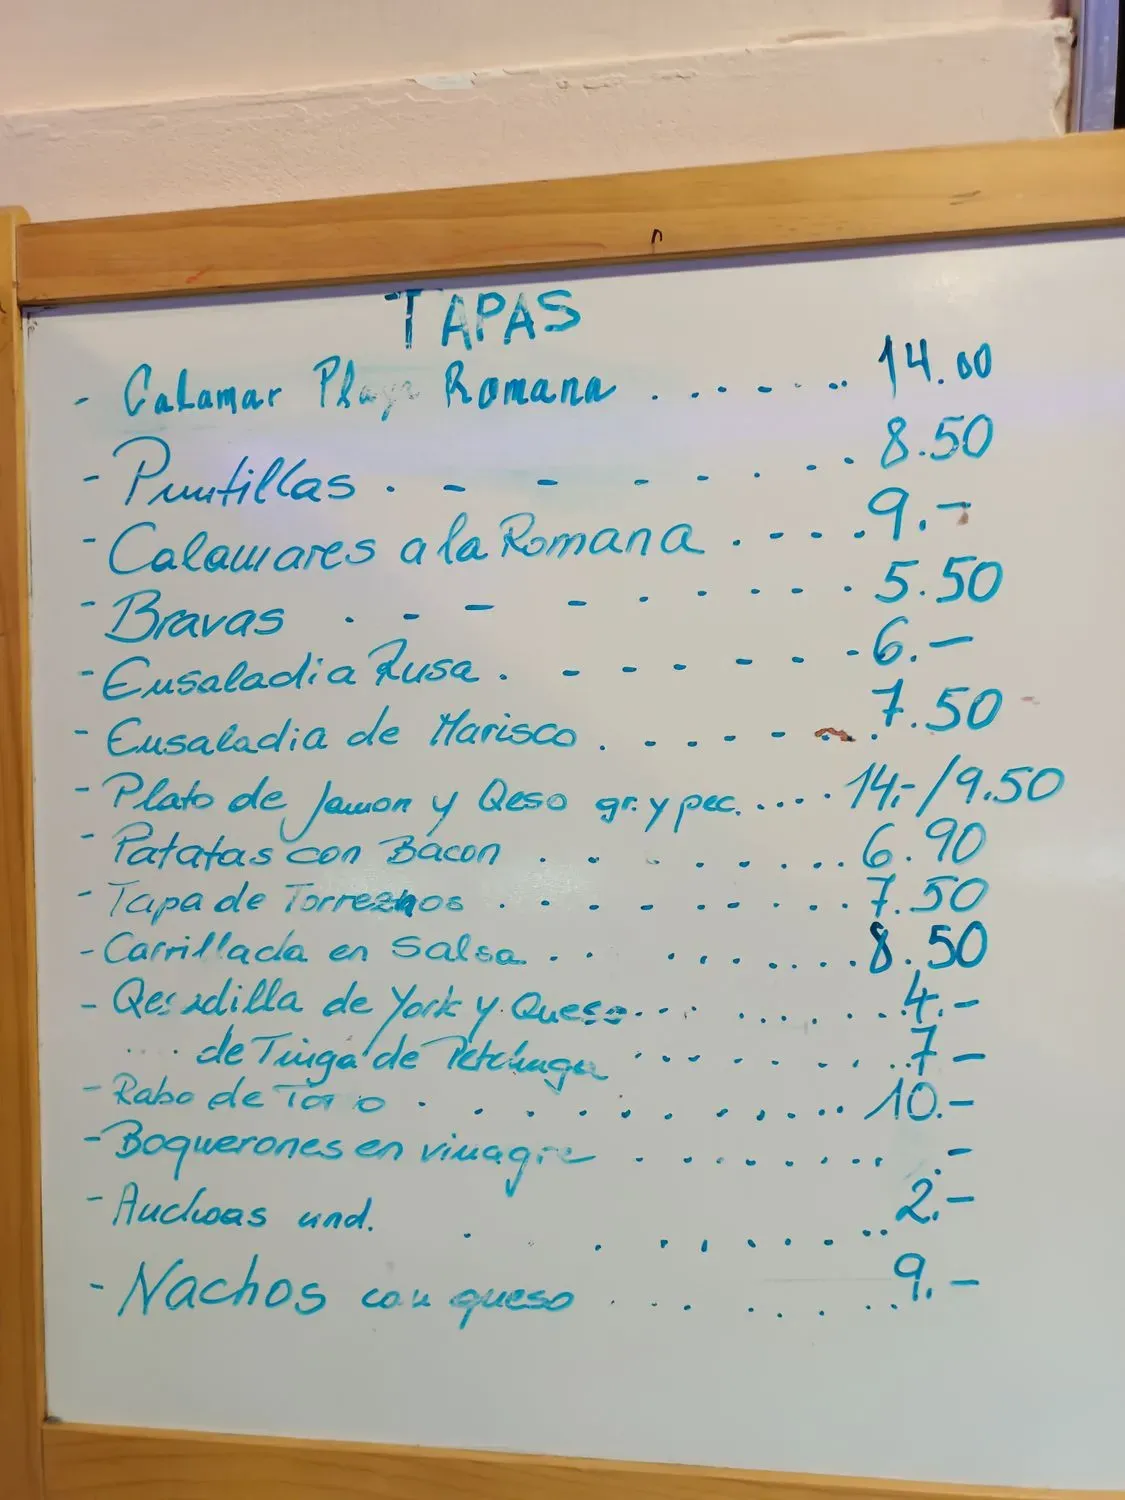 TAPAS
- Calamar Playa Romana ......... 14.00
- Puntillas . - - - - . . . . 8.50
- Calamares a la Romana ..... 9.-
- Bravas . - - - . . . . . . 5.50
- Ensaladia Rusa . - - - - - - - 6.-
- Ensaladia de Marisco . . . . - - . 7.50
- Plato de Jamon y Qeso gr. y peq. .... 14,-/9.50
- Patatas con Bacon . . . . . . . . . 6.90
- Tapa de Torreznos . . . . . . . . . 7.50
- Carrillada en Salsa . . . . . . . . . 8.50
- Qesadilla de York y Queso ... ....... 4.-
.... de Tinga de Petchuga ......... 7-
- Rabo de Toro . . . . . . . . . . . 10.-
- Boquerones en vinagre . . . . . . . . .-
- Anchoas und. . . . . . . . . . . 2.-
- Nachos con queso . . . . . . . . 9.-